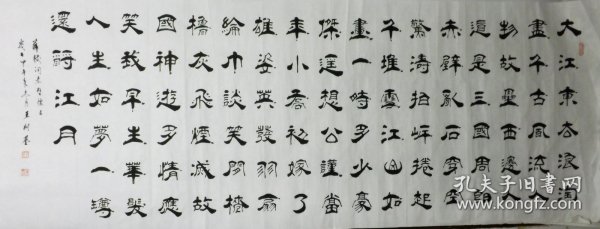 大江東去浪淘
盡千古風流人
物故壘西邊人
道是三國周郎
赤壁亂石穿空
驚濤拍岸捲起
千堆雪江山如
畫一時多少豪
傑遙想公謹當
年小喬初嫁了
雄姿英發羽扇
綸巾談笑間檣
櫓灰飛煙滅故
國神遊多情應
笑我早生華髮
人生如夢一尊
還酹江月
蘇軾詞
孔夫子旧书网